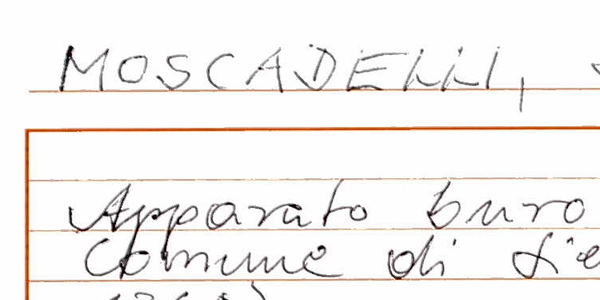 MOSCADELLI,
Apparato buro
Comune di Sie